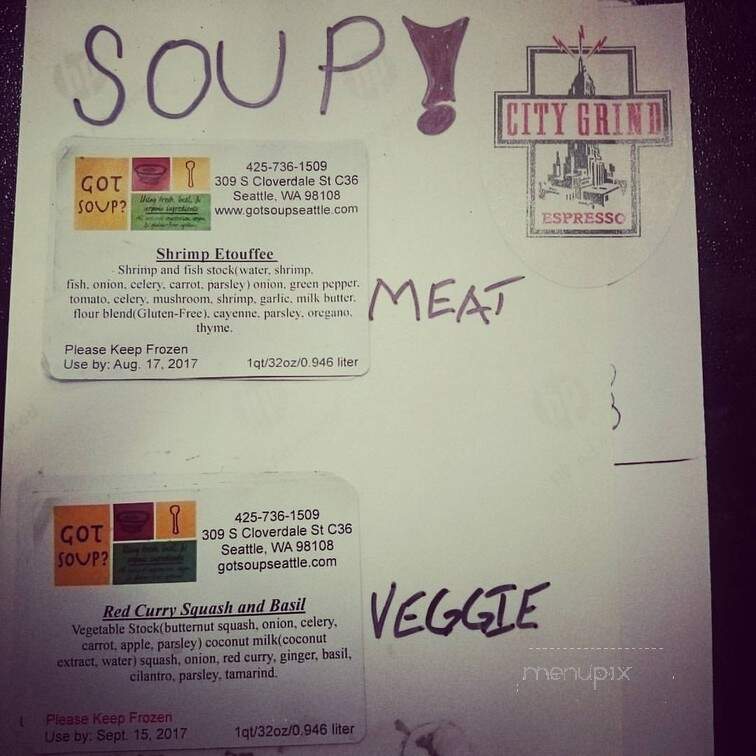 SOUP!
CITY GRIND
ESPRESSO
GOT
SOUP?
425-736-1509
309 S Cloverdale St C36
Seattle, WA 98108
www.gotsoupseattle.com
Using fresh, local, &
organic ingredients
Shrimp Etouffee
Shrimp and fish stock(water, shrimp,
fish, onion, celery, carrot, parsley) onion, green pepper,
tomato, celery, mushroom, shrimp, garlic, milk butter,
flour blend(Gluten-Free), cayenne, parsley, oregano,
thyme.
Please Keep Frozen
Use by: Aug. 17, 2017
1qt/32oz/0.946 liter
MEAT
GOT
SOUP?
425-736-1509
309 S Cloverdale St C36
Seattle, WA 98108
gotsoupseattle.com
Red Curry Squash and Basil
Vegetable Stock(butternut squash, onion, celery,
carrot, apple, parsley) coconut milk(coconut
extract, water) squash, onion, red curry, ginger, basil,
cilantro, parsley, tamarind.
Please Keep Frozen
Use by: Sept. 15, 2017
1qt/32oz/0.946 liter
VEGGIE
menupix